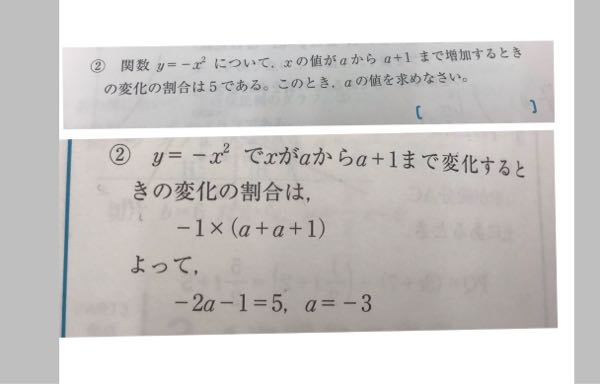 ② 関数 y=−x² について，xの値がaから a+1 まで増加するとき
の変化の割合は5である。このとき，aの値を求めなさい。
〔 〕
② y=−x² でxがaからa+1まで変化すると
きの変化の割合は，
−1×(a+a+1)
よって，
−2a−1=5，a=−3